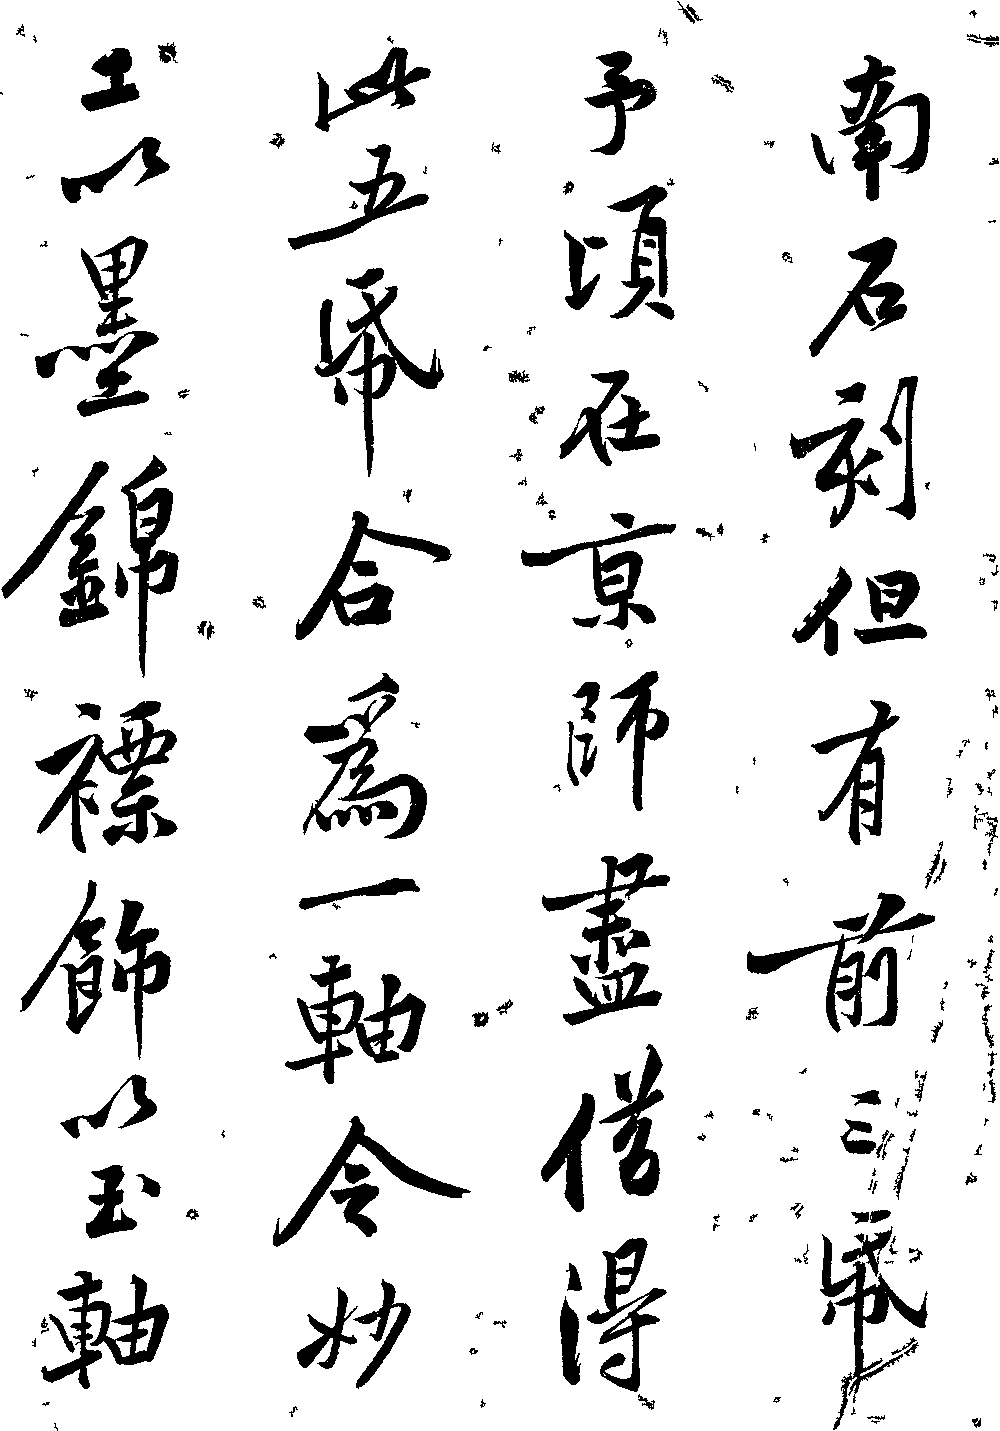 南石刻但有前三帋
予頃在京師盡借得
此五帋合爲一軸令妙
工以墨錦褾飾以玉軸